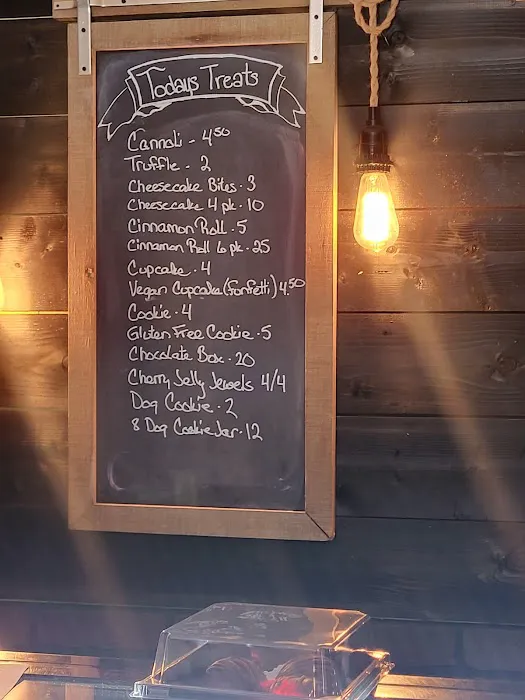 Todays Treats
Cannoli - 4.50
Truffle - 2
Cheesecake Bites - 3
Cheesecake 4 pk - 10
Cinnamon Roll - 5
Cinnamon Roll 6 pk - 25
Cupcake - 4
Vegan Cupcake (Fonfetti) 4.50
Cookie - 4
Gluten Free Cookie - 5
Chocolate Box - 20
Cherry Jelly Jewels 4/4
Dog Cookie - 2
8 Dog Cookie Jar - 12